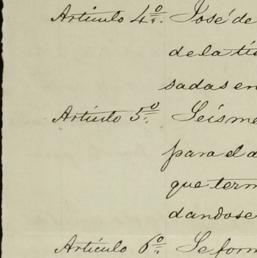 Artículo 4º José de
de la tie
sadas en
Artículo 5º Seis me
para el a
que term
dandose
Artículo 6º Se form